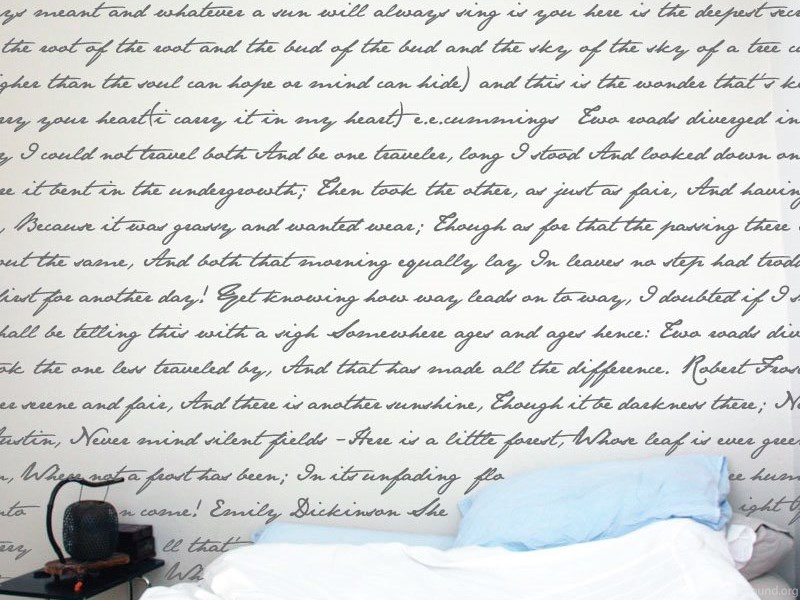 ys meant and whatever a sun will always sing is you here is the deepest secr
the root of the root and the bud of the bud and the sky of the sky of a tree c
gher than the soul can hope or mind can hide) and this is the wonder that's k
rry your heart(i carry it in my heart) e.e.cummings Two roads diverged in
y I could not travel both And be one traveler, long I stood And looked down on
re it bent in the undergrowth; Then took the other, as just as fair, And having
, Because it was grassy and wanted wear; Though as for that the passing there
out the same, And both that morning equally lay In leaves no step had trodd
first for another day! Yet knowing how way leads on to way, I doubted if I s
hall be telling this with a sigh Somewhere ages and ages hence: Two roads div
ok the one less traveled by, And that has made all the difference. Robert Fros
er serene and fair, And there is another sunshine, Though it be darkness there; N
Austin, Never mind silent fields -Here is a little forest, Whose leaf is ever gree
n, Where not a frost has been; In its unfading flo ee hum
nto n come! Emily Dickinson She ight
rry ll that
Wh